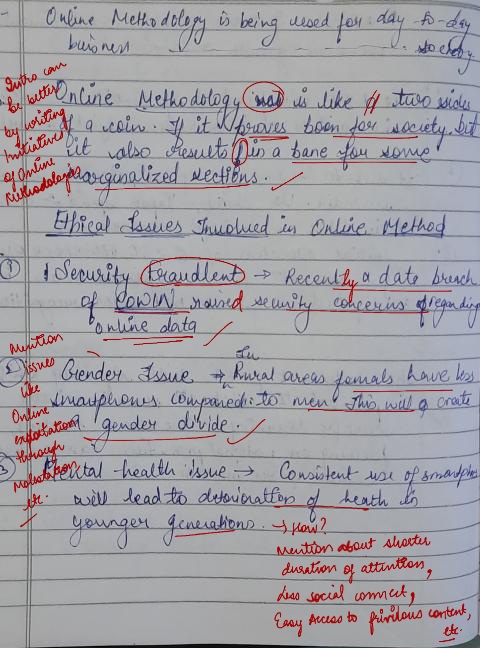 Online Methodology is being used for day-to-day
business ... society
Online Methodology not is like two sides
of a coin. If it proves boon for society but
it also results in a bane for some
marginalized sections.
Intro can
be better
by writing
initiatives
of Online
Methodologies
Ethical Issues Involved in Online Method
1 Security Fraudlent → Recently a date breach
of COWIN raised security concerns of regarding
online data
2 Gender Issue → In Rural areas females have less
smartphones compared to men This will create
gender divide.
Mention
issues
like
Online
exploitation
through
Molestation
etc.
3 Mental health issue → Consistent use of smartphone
will lead to deterioration of heath in
younger generations.
→ How?
Mention about shorter
duration of attention,
Less social connect,
Easy Access to frivilous content,
etc.